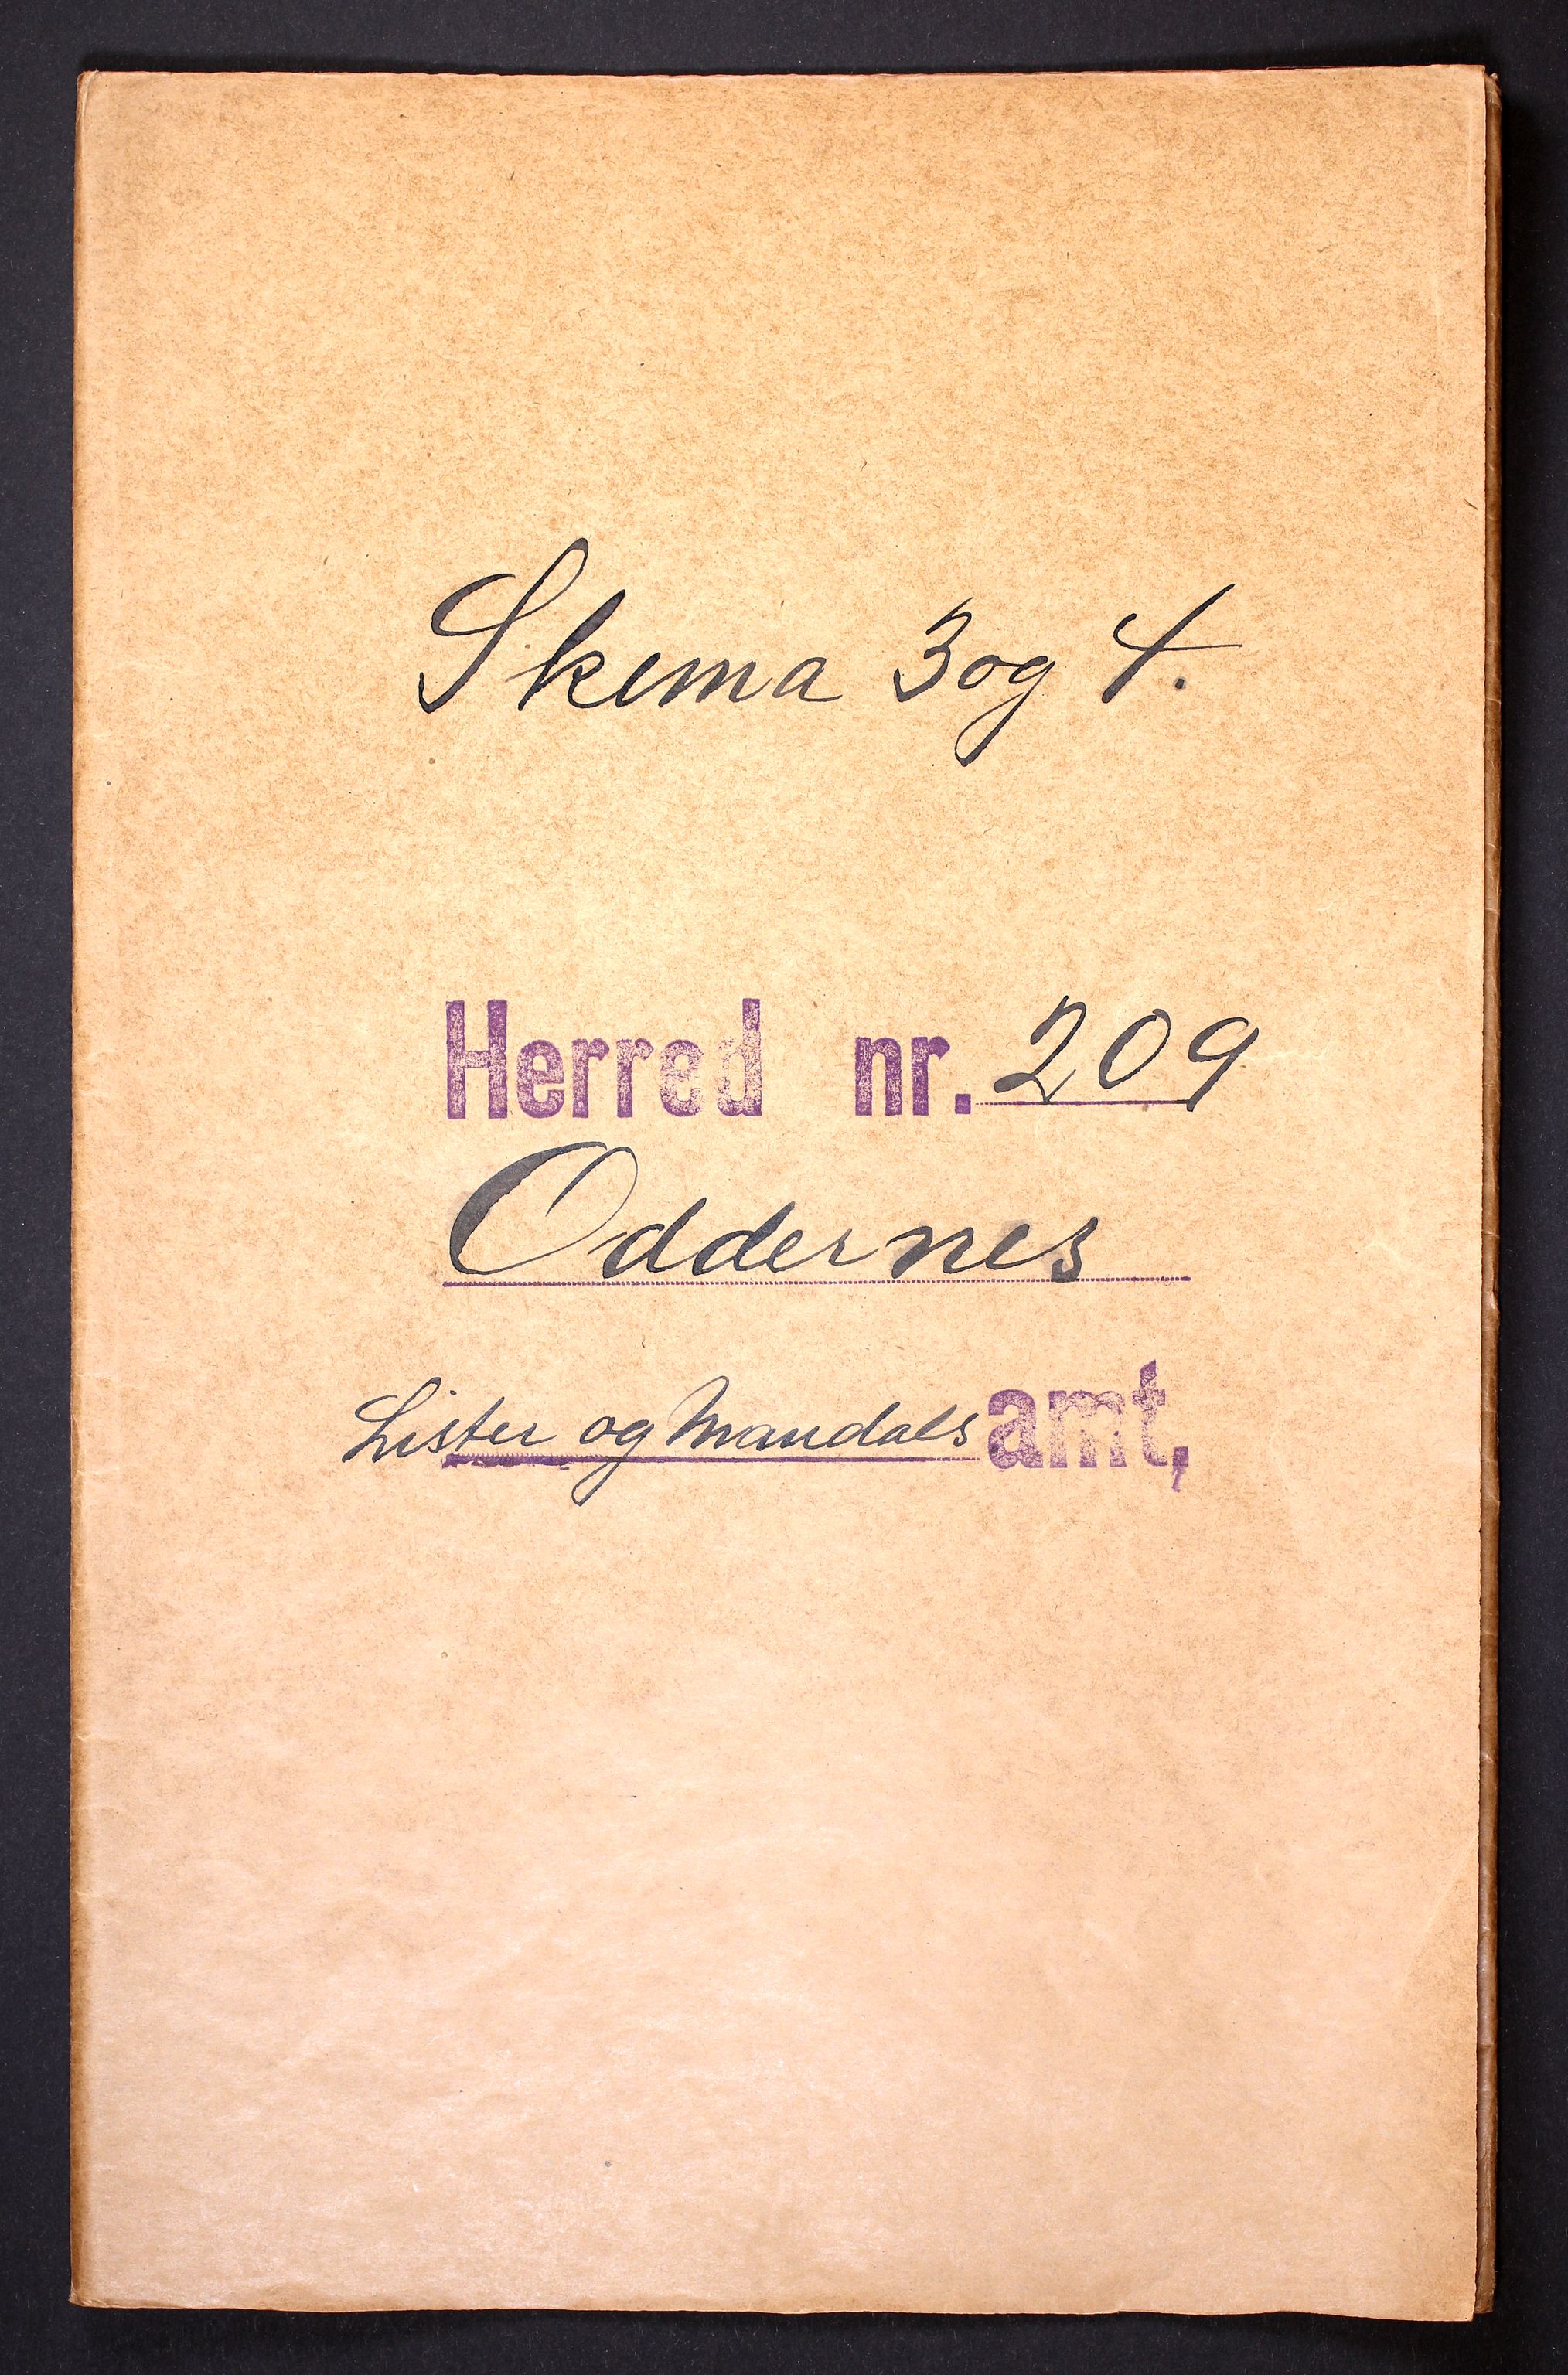 Skema 3 og 4.
Herred nr. 209
Oddernes
Lister og Mandals amt,